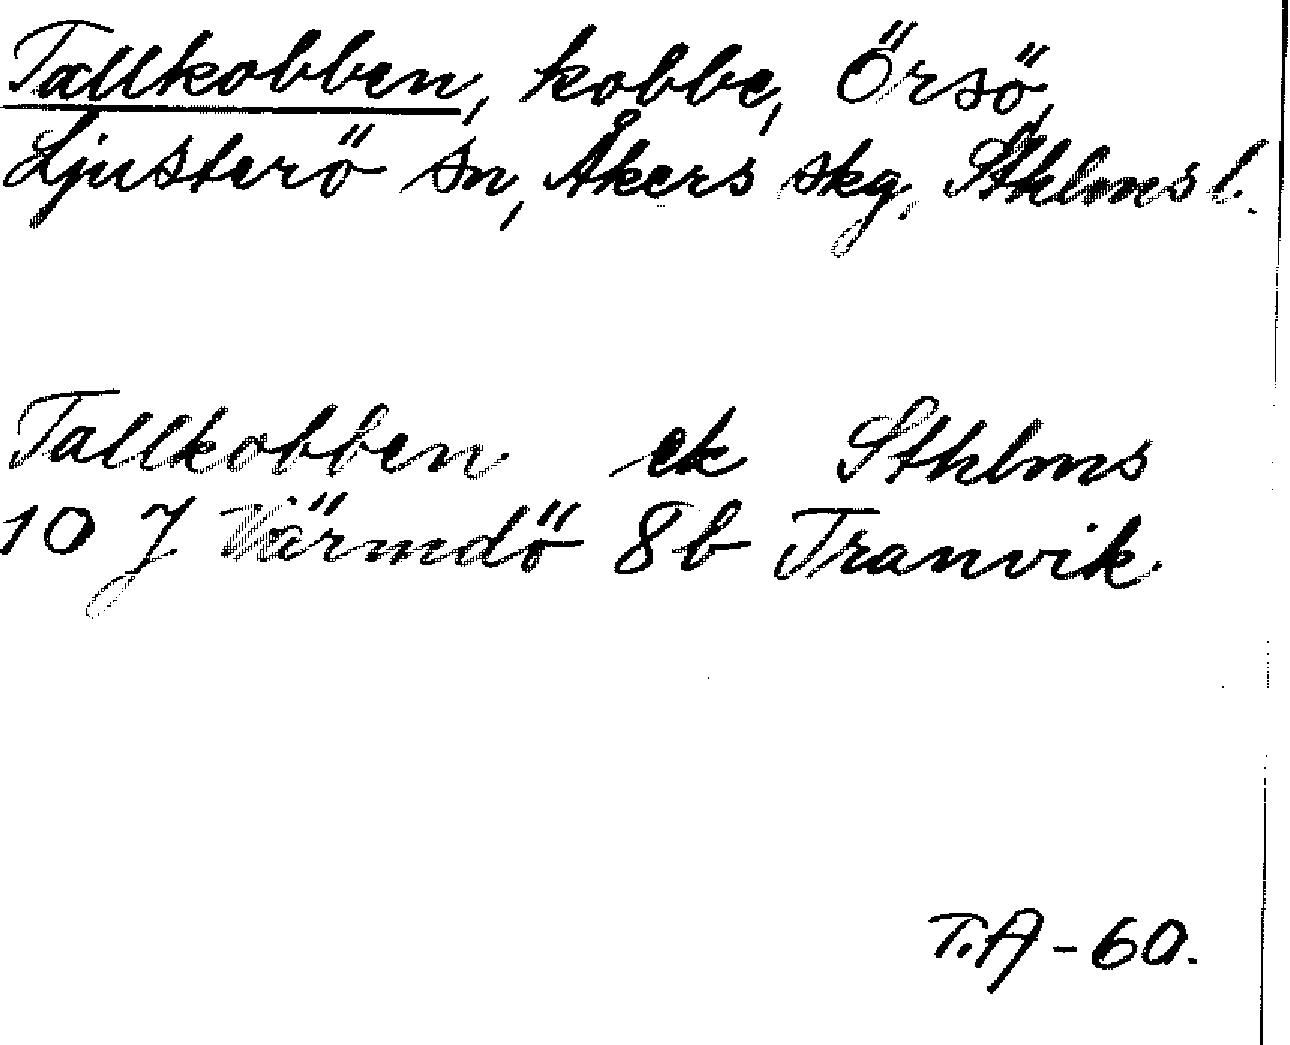 Tallkobben, kobbe, Örsö,
Ljusterö sn, Åkers skg, Sthlms l.
Tallkobben ek Sthlms
10 J Värmdö 8b Tranvik
T.A-60.